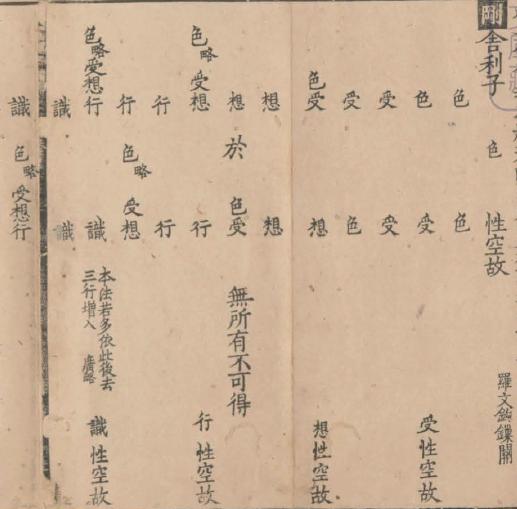 剛 舍利子 色 性空故 羅文鈎鏁關
色 色
色 受 受性空故
受 受
受 色
色受 想 想性空故
想 想
想 於 色受 無所有不可得
色略受想 行 行性空故
行 行
行 色略受想
色略受想行 識 本法若多依此後去
三行增入 廣略
識性空故
識 識
識 色略受想行